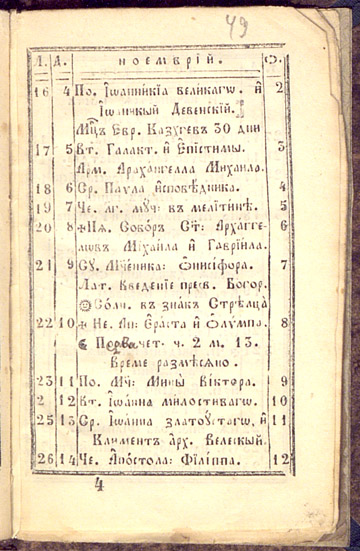 49
Л. Д. НОЕМВРІЙ. Ѳ.
16 4 По. Іѡанникіа великагѡ. и 2
Іѡаничкый Девенскій.
Мцъ Евр. Казҳгевъ 30 дни
17 5 Вт. Галакт. и Епістимы. 3
Арм. Арахангелла Михаила.
18 6 Ср. Паѵла исповѣдника. 4
19 7 Че. лг. мѹч: въ мелітинѣ. 5
20 8 +Пѧ. Соборъ Ст: Арахгге- 6
лѡвъ Міхаила и Гавріила.
21 9 Сѹ. Мченика: Онисіфора. 7
Лат. Введеніе прес. Богор.
Солн. въ знакъ Стрѣлца
22 10 + Не. Ап: Ераста и Олѵмпа. 8
Перва чет. ч. 2 м. 13.
Време размѣсѧно.
23 11 По. Мч: Мины Віктора. 9
2 12 Вт. Іѡанна милостивагѡ. 10
25 13 Ср. Іѡанна златоѹстагѡ, и 11
Климентъ Арх. Велеский.
26 14 Че. Апостола: Філіппа. 12
4